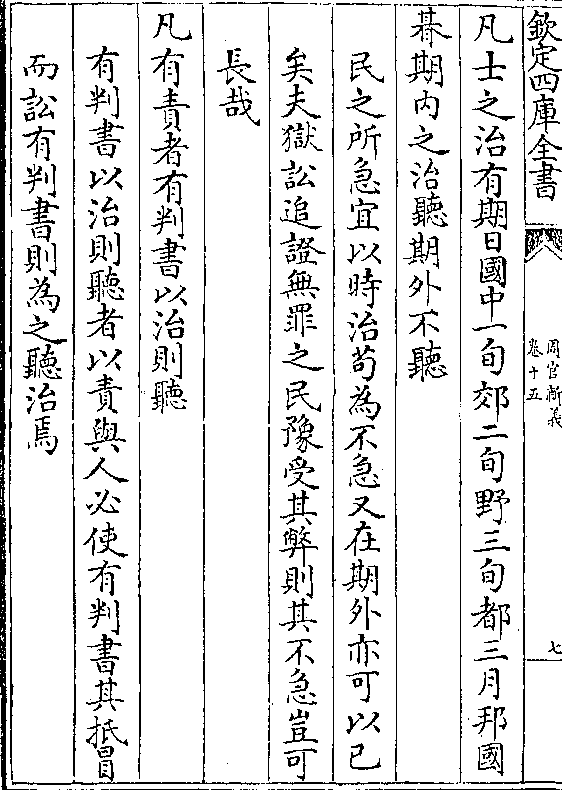 欽定四庫全書
周官新義
卷十五
七
凡士之治有期日國中一旬郊二旬野三旬都三月邦國
朞期内之治聽期外不聽
民之所急宜以時治苟為不急又在期外亦可以已
矣夫獄訟追證無罪之民豫受其弊則其不急豈可
長哉
凡有責者有判書以治則聽
有判書以治則聽者以責與人必使有判書其抵冒
而訟有判書則為之聽治焉